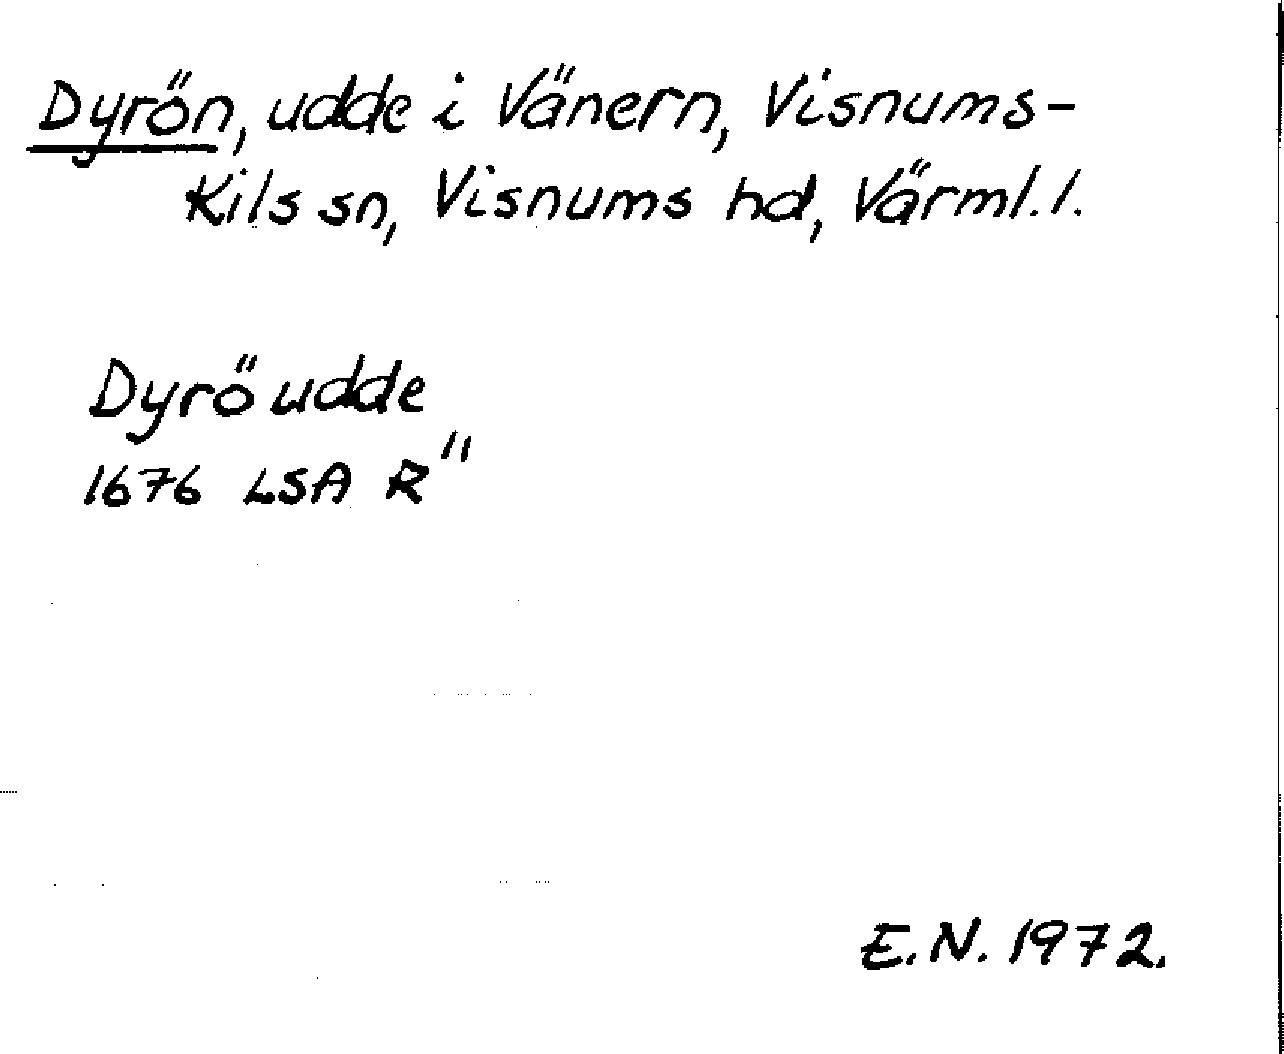 Dyrön, udde i Vänern, Visnums-
Kils sn, Visnums hd, Värml. l.
Dyrö udde
1676 LSA R"
E.N. 1972.